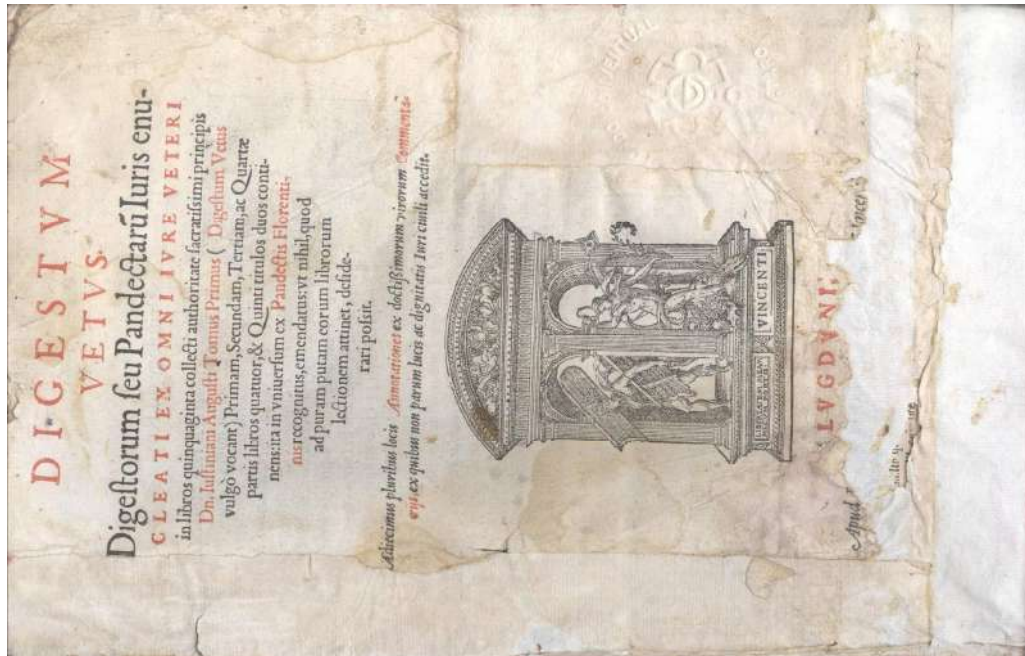 DIGESTVM
VETVS.
Digeſtorum ſeu Pandectarũ Iuris enu-
CLEATI EX OMNI IVRE VETERI
in libros quinquaginta collecti authoritate ſacratiſsimi principis
Dn. Iuſtiniani Auguſti Tomus Primus ( Digeſtum Vetus
vulgò vocant) Primam, Secundam, Tertiam, ac Quartæ
partis libros quatuor, & Quinti titulos duos conti-
nens: ita in vniuerſum ex Pandectis Florenti-
nis recognitus, emendatus: vt nihil, quod
ad puram putam eorum librorum
lectionem attinet, deſide-
rari poſsit.
Adiecimus pluribus locis Annotationes ex doctiſsimorum virorum Commenta-
rijs, ex quibus non parum lucis ac dignitatis Iuri ciuili accedit.
VINCENTI
LVGDVNI,
Apud